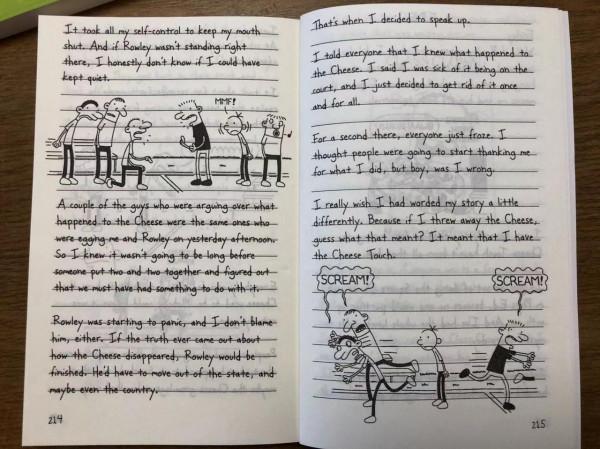 It took all my self-control to keep my mouth
shut. And if Rowley wasn't standing right
there, I honestly don't know if I could have
kept quiet.
MMF!
A couple of the guys who were arguing over what
happened to the Cheese were the same ones who
were egging me and Rowley on yesterday afternoon.
So I knew it wasn't going to be long before
someone put two and two together and figured out
that we must have had something to do with it.
Rowley was starting to panic, and I don't blame
him, either. If the truth ever came out about
how the Cheese disappeared, Rowley would be
finished. He'd have to move out of the state, and
maybe even the country.
214
That's when I decided to speak up.
I told everyone that I knew what happened to
the Cheese. I said I was sick of it being on the
court, and I just decided to get rid of it once
and for all.
For a second there, everyone just froze. I
thought people were going to start thanking me
for what I did, but boy, was I wrong.
I really wish I had worded my story a little
differently. Because if I threw away the Cheese,
guess what that meant? It meant that I have
the Cheese Touch.
SCREAM!
SCREAM!
215